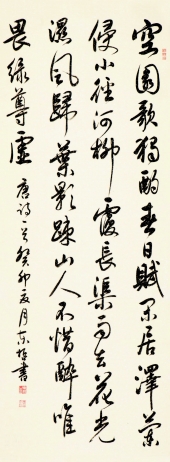 空園歌獨酌春日賦閑居澤蘭
侵小徑河柳覆長渠雨去花光
濕風歸葉影疎山人不惜醉唯
畏綠尊虛
唐詩一首癸卯夏月东書